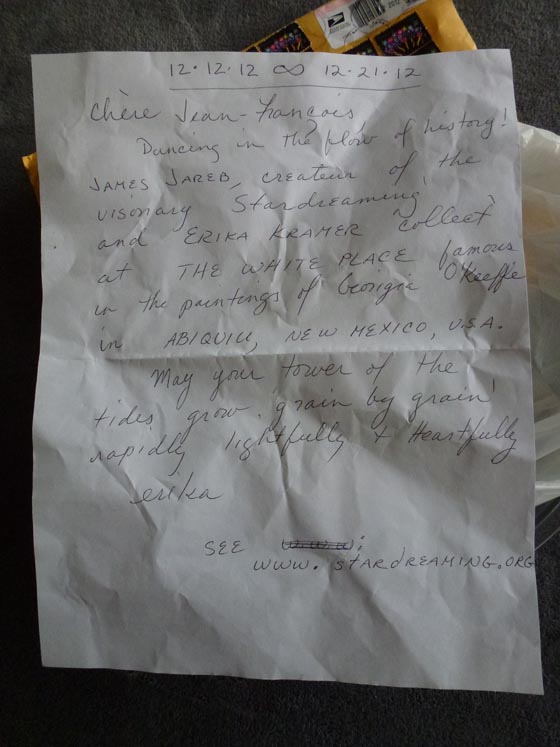 12·12·12 ∞ 12·21·12
chère Jean-François,
Dancing in the flow of history!
JAMES JAREB, createur of the
visionary Stardreaming,
and ERIKA KRAMER collect
at THE WHITE PLACE famous
in the paintings of Georgia O'Keeffe
in ABIQUIU, NEW MEXICO, U.S.A.
May your tower of the
tides grow grain by grain
rapidly lightfully + Heartfully
erika
SEE :
www.STARDREAMING.ORG